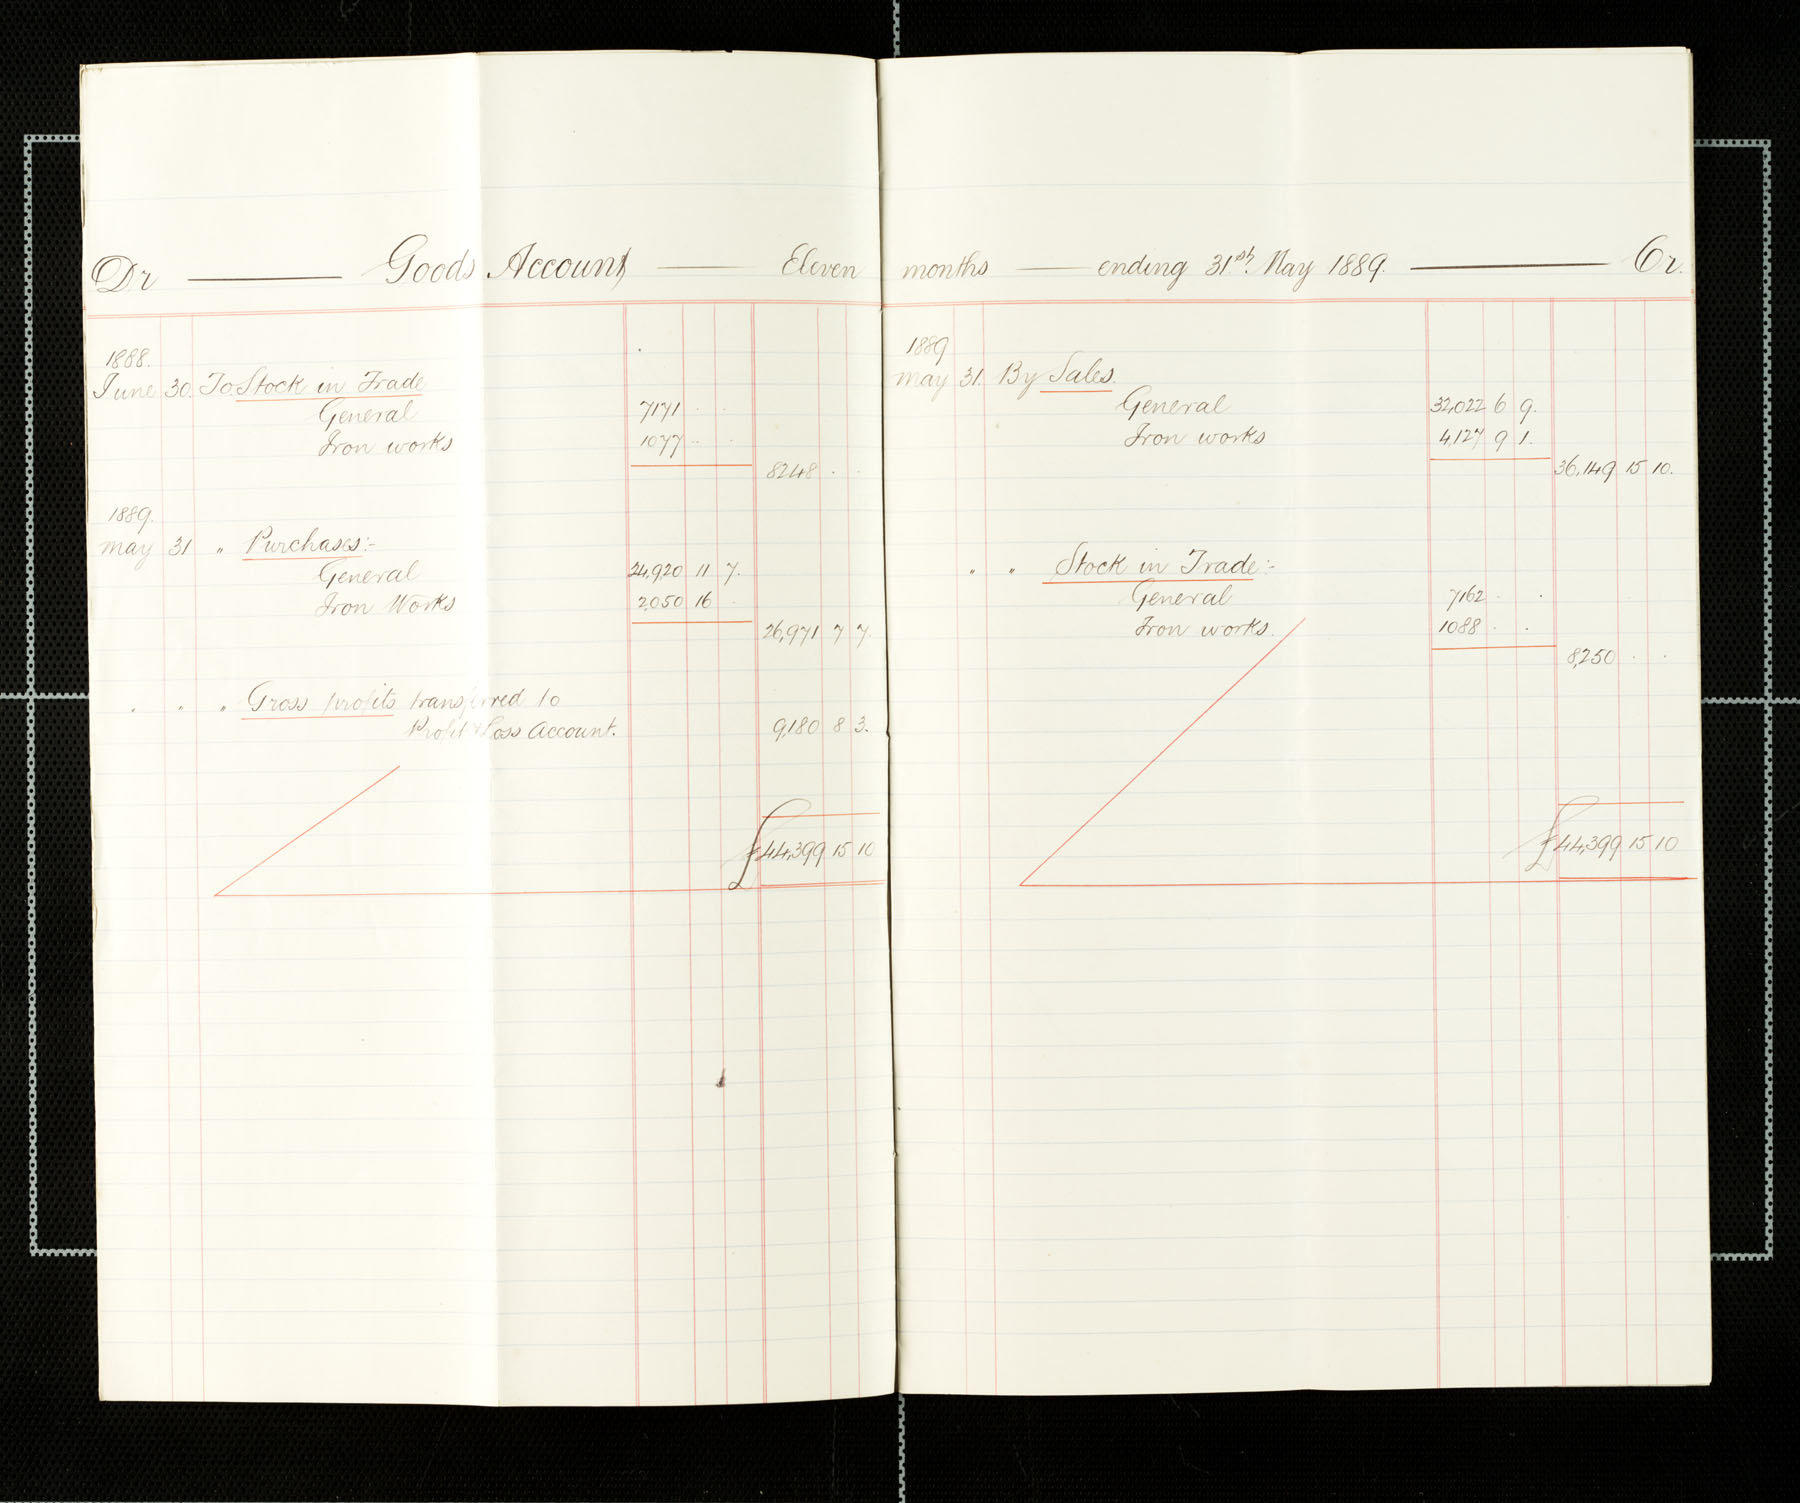 Dr Goods Account Eleven months ending 31st. May 1889. Cr.
1888.
June 30. To Stock in Trade
General 7171 . .
Iron works 1077 . .
8248 . .
1889.
May 31 " Purchases:-
General 24,920 11 7.
Iron Works 2,050 16 .
26,971 7 7.
" " " Gross profits transferred to
Profit & Loss Account. 9,180 8 3.
£44,399 15 10
1889
May 31. By Sales.
General 32,022 6 9.
Iron works 4,127 9 1.
36,149 15 10.
" " Stock in Trade:-
General 7162 . .
Iron works. 1088 . .
8,250 . .
£44,399 15 10